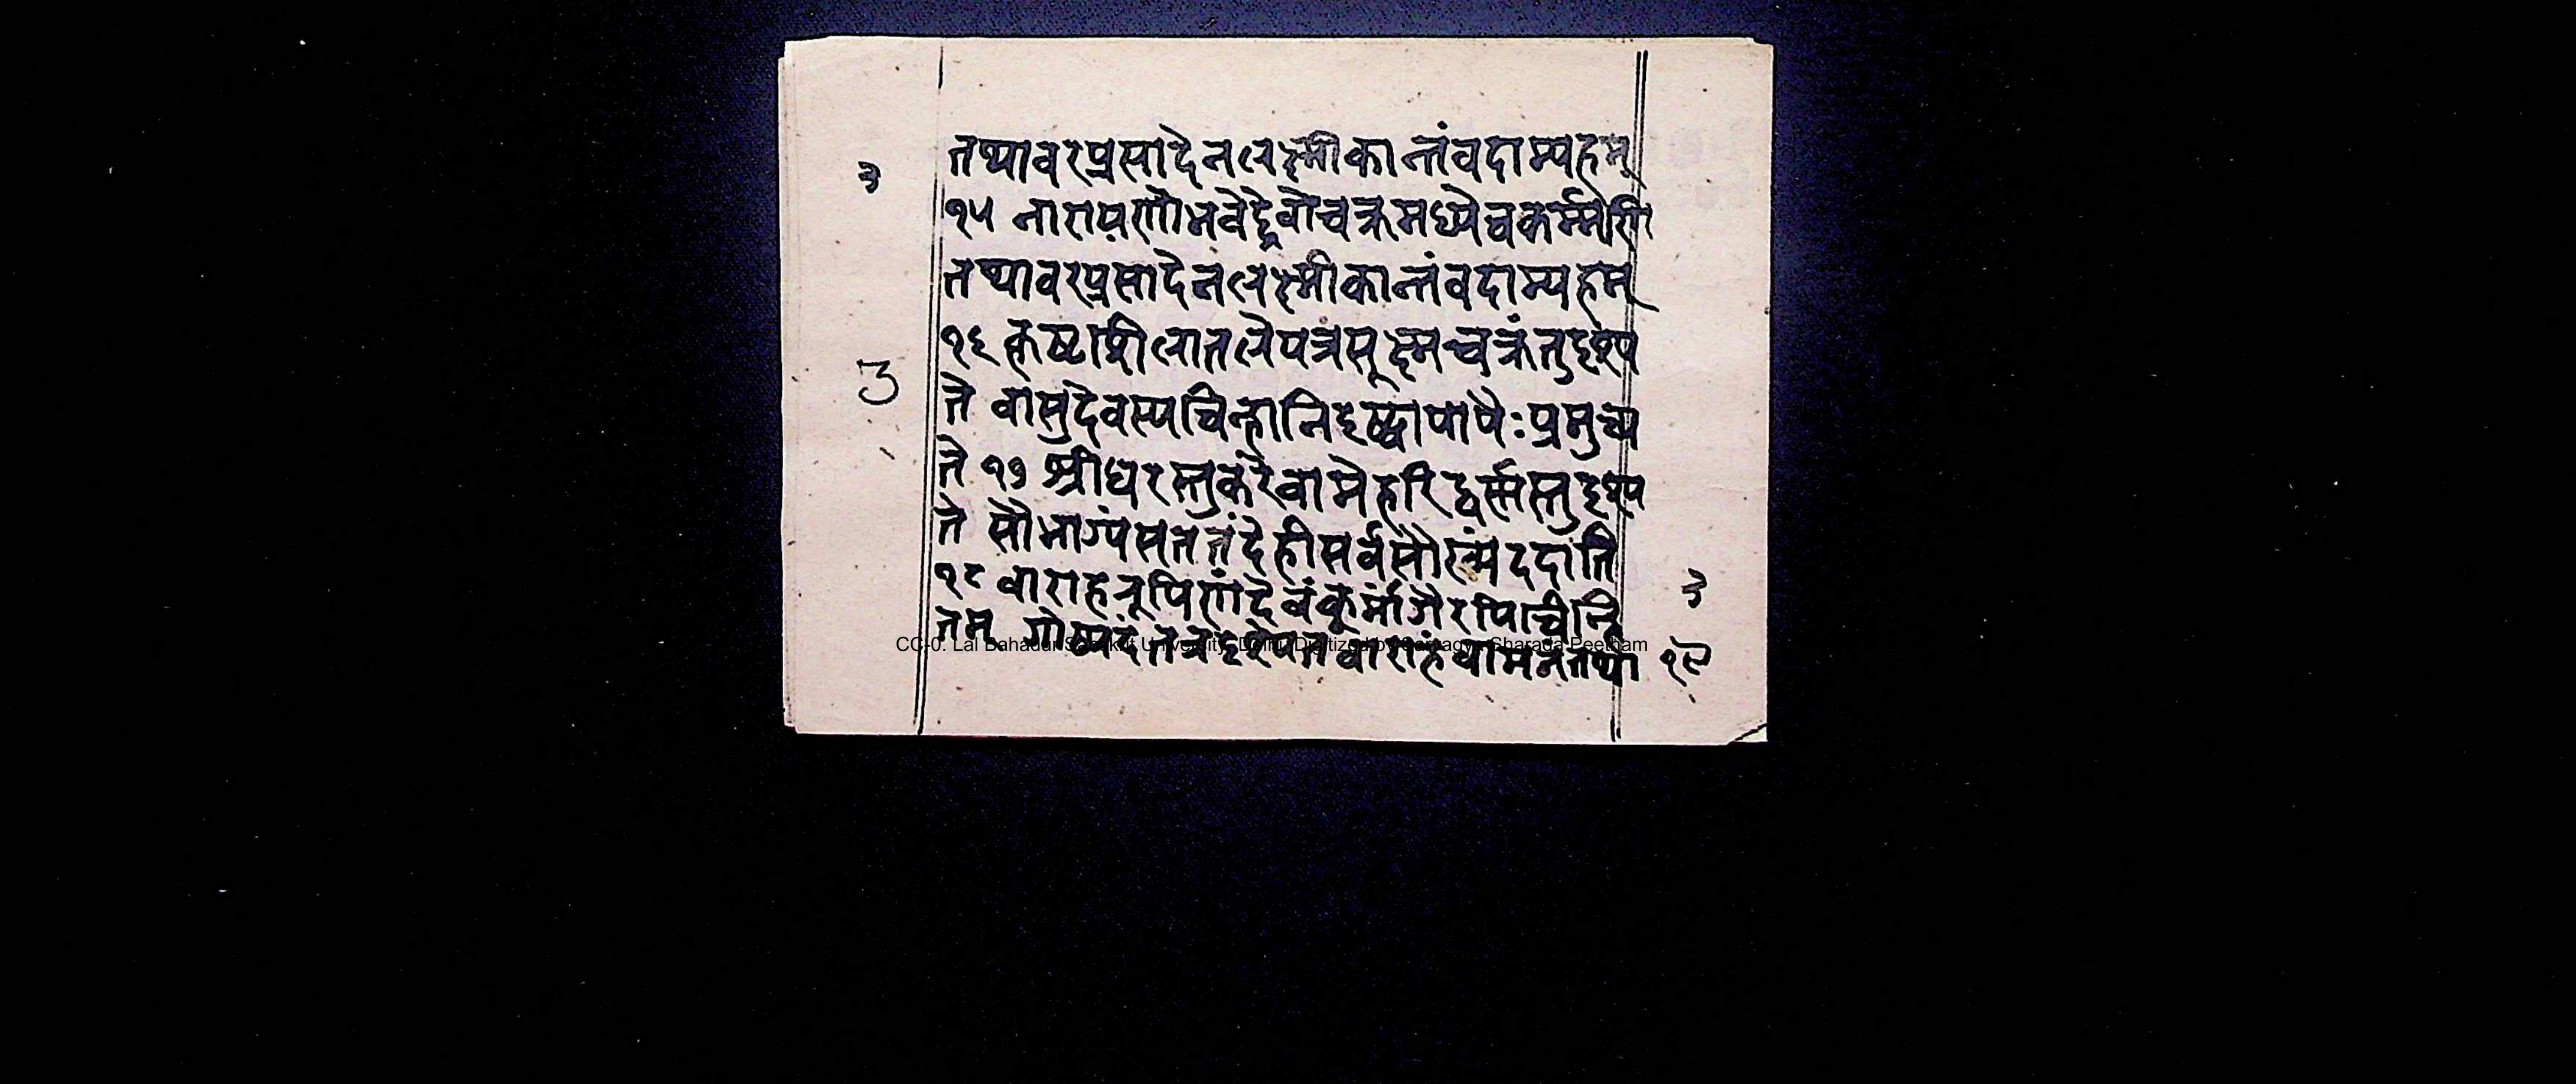 ३
तथावरप्रसादेनलक्ष्मीकान्तंवदाम्यहम्
१५ नारायणोभवेद्देवोचक्रमध्येचकर्म्मणि
तथावरप्रसादेनलक्ष्मीकान्तंवदाम्यहम्
१६ कृष्टाशीलातलेयत्रसूक्ष्मचक्रंतुदृश्य
3
ते वासुदेवस्यचिन्हानिदृष्ट्वापापैःप्रमुच्य
ते १७ श्रीधरस्तुकरेवामेहरिद्वर्णस्तुदृश्य
ते सौभाग्यंसततंदेहीसर्वसौख्यंददाति
१८ वाराहरूपिणंदेवंकूर्मांगैरपिचीन्हि
३
तम् गोष्पदंतत्रदृश्येतवाराहंवामनंतथा १९
CC-0. Lal Bahadur Sanskrit University, Delhi. Digitized by Sarvagya Sharada Peetham